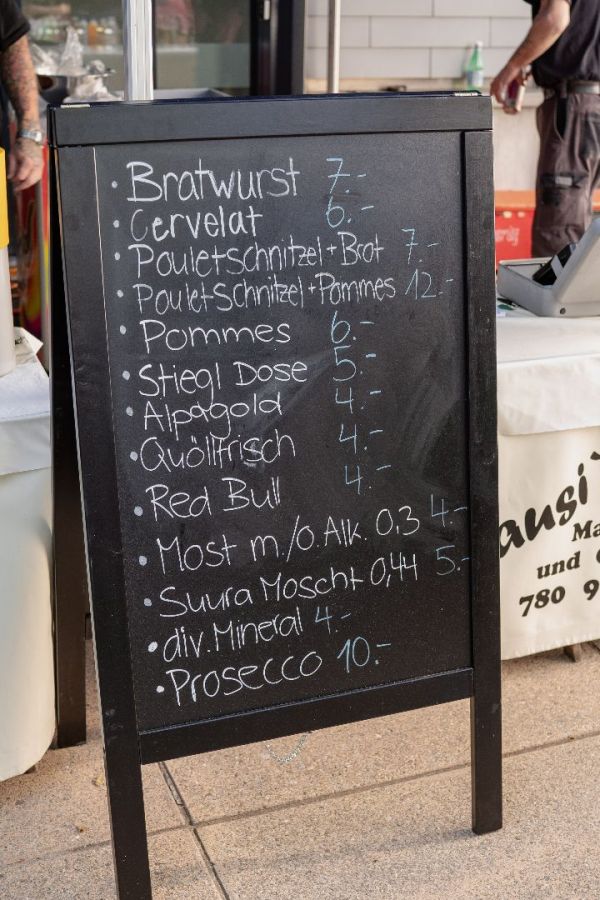 • Bratwurst 7.-
• Cervelat 6.-
• Pouletschnitzel + Brot 7.-
• Pouletschnitzel + Pommes 12.-
• Pommes 6.-
• Stiegl Dose 5.-
• Alpagold 4.-
• Quöllfrisch 4.-
• Red Bull 4.-
• Most m./o. Alk. 0.3 4.-
• Suura Moscht 0,44 5.-
• div. Mineral 4.-
• Prosecco 10.-
ausi
Ma
und
780 9